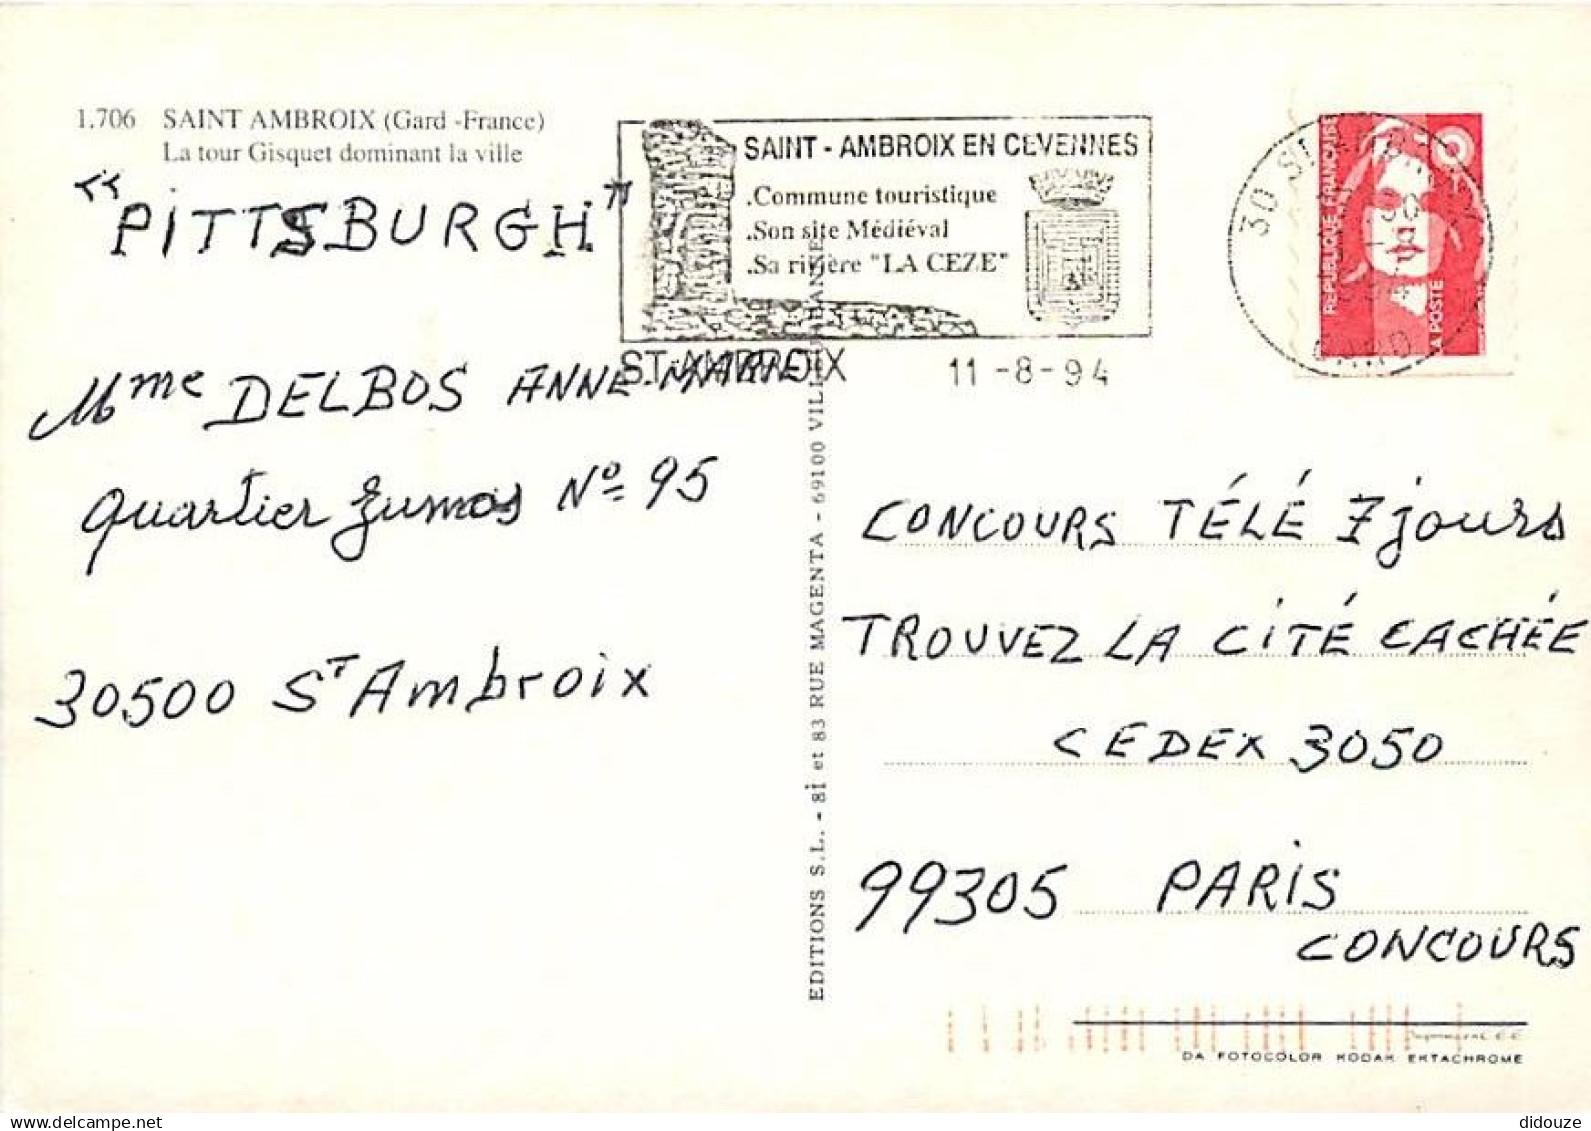 1.706 SAINT AMBROIX (Gard -France)
La tour Gisquet dominant la ville
"PITTSBURGH"
Mme DELBOS ANNE-MARIE
Quartier N° 95
30500 ST Ambroix
SAINT - AMBROIX EN CEVENNES
.Commune touristique
.Son site Médiéval
.Sa rivière "LA CEZE"
ST AMBROIX 11 -8- 94
30 ST
REPUBLIQUE FRANÇAISE
LA POSTE
EDITIONS S.L. - 81 et 83 RUE MAGENTA - 69100 VILLEURBANNE
CONCOURS TÉLÉ 7 jours
TROUVEZ LA CITÉ CACHÉE
CEDEX 3050
99305 PARIS
CONCOURS
DA FOTOCOLOR KODAK EKTACHROME
delcampe.net
didouze